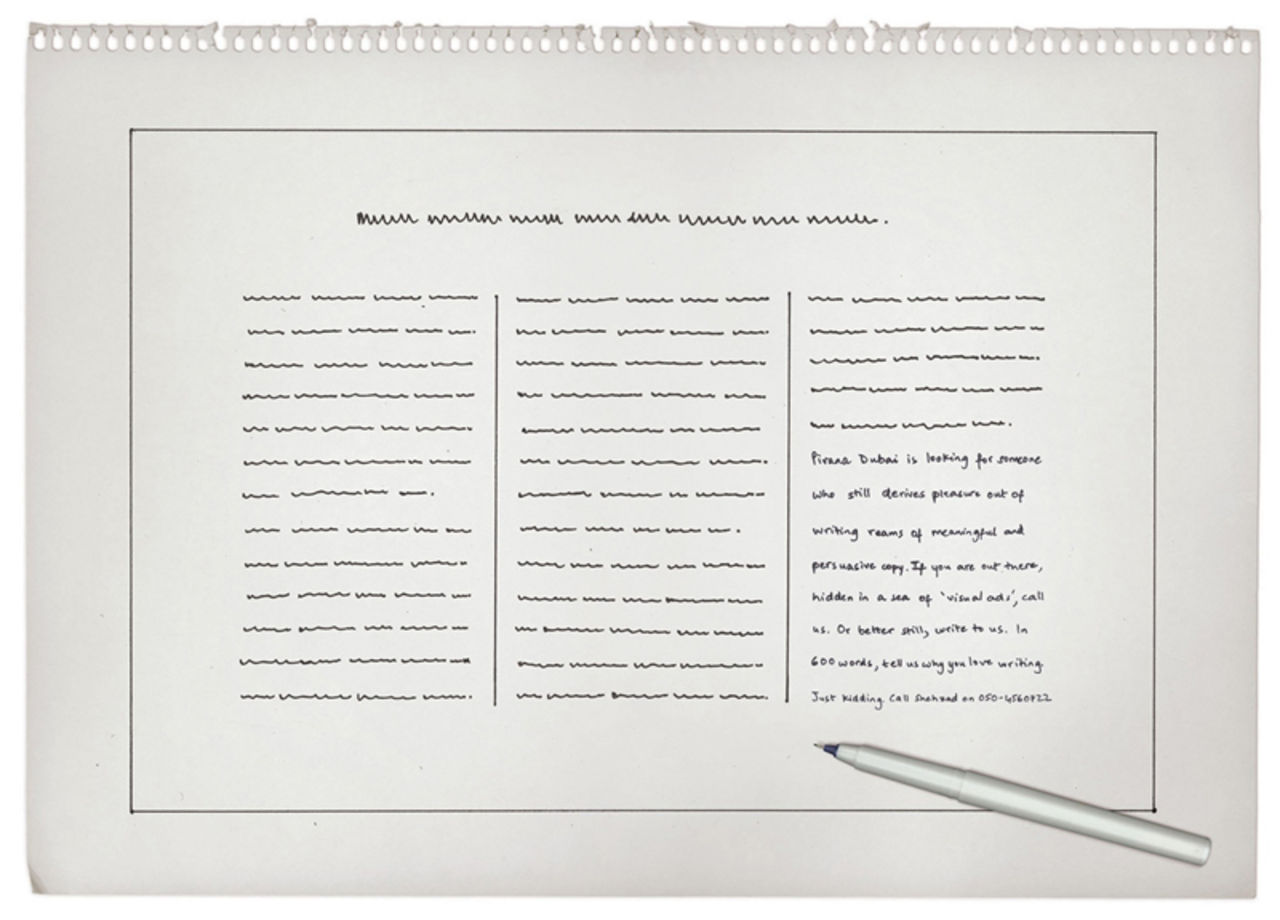 Pirana Dubai is looking for someone
who still derives pleasure out of
writing reams of meaningful and
persuasive copy. If you are out there,
hidden in a sea of 'visual ads', call
us. Or better still, write to us. In
600 words, tell us why you love writing.
Just kidding. Call Shahzad on 050-4560722